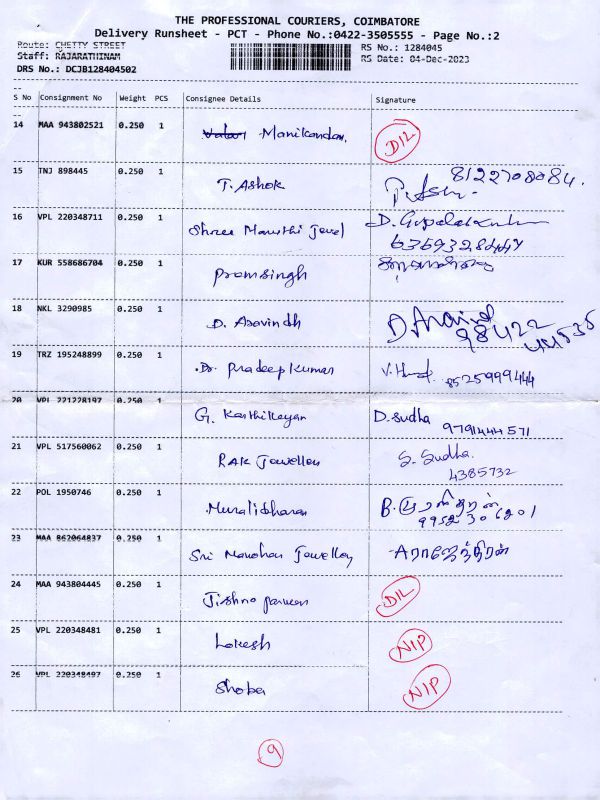 THE PROFESSIONAL COURIERS, COIMBATORE
Delivery Runsheet - PCT - Phone No.:0422-3505555 - Page No.:2
Route: CHETTY STREET RS No.: 1284045
Staff: RAJARATHINAM RS Date: 04-Dec-2023
DRS No.: DCJB128404502
S No Consignment No Weight PCS Consignee Details Signature
14 MAA 943802521 0.250 1 Manikandan. DIL
15 TNJ 898445 0.250 1 T. Ashok 8122708084.
16 VPL 220348711 0.250 1 Shree Maruthi Jewel D. Gopalakrishnan
17 KUR 558686704 0.250 1 Premsingh
18 NKL 3290985 0.250 1 D. Aravindh D. Aravind
98422
44535
19 TRZ 195248899 0.250 1 Dr. Pradeep Kumar 8525999444
20 VPL 221228197 0.250 1 G. Karthikeyan D. Sudha
9791444571
21 VPL 517560062 0.250 1 RAK Jewellery S. Sudha.
4385732
22 POL 1950746 0.250 1 Muralidharan B. முரளிதரன்
23 MAA 862064837 0.250 1 Sri Manohar Jewellery A ராஜேந்திரன்
24 MAA 943804445 0.250 1 DIL
25 VPL 220348481 0.250 1 Lokesh NIP
26 VPL 220348497 0.250 1 Shoba NIP
9